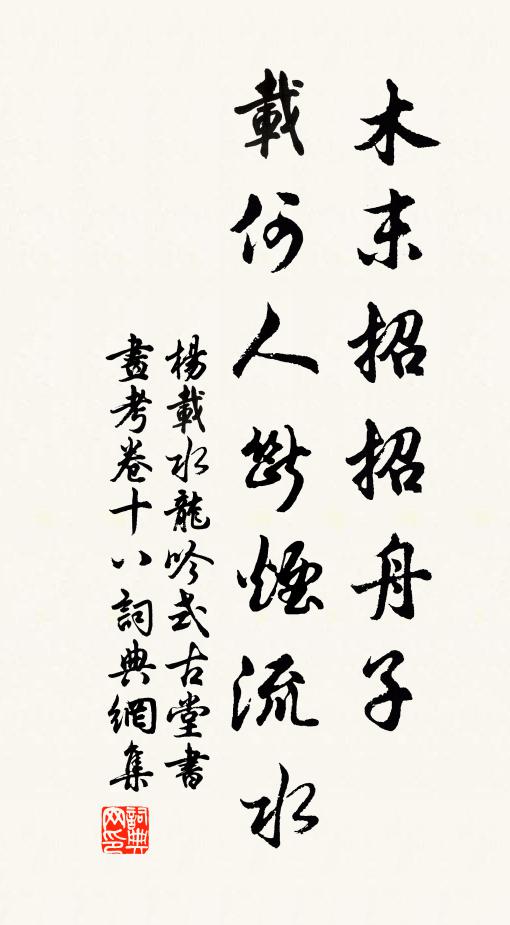 木末招招舟子
載何人斷煙流水
楊載水龍吟式古堂書
畫考卷十八詞典網集
詞典网印